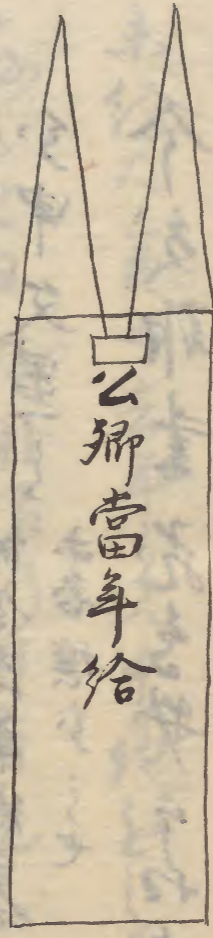 公卿當年給